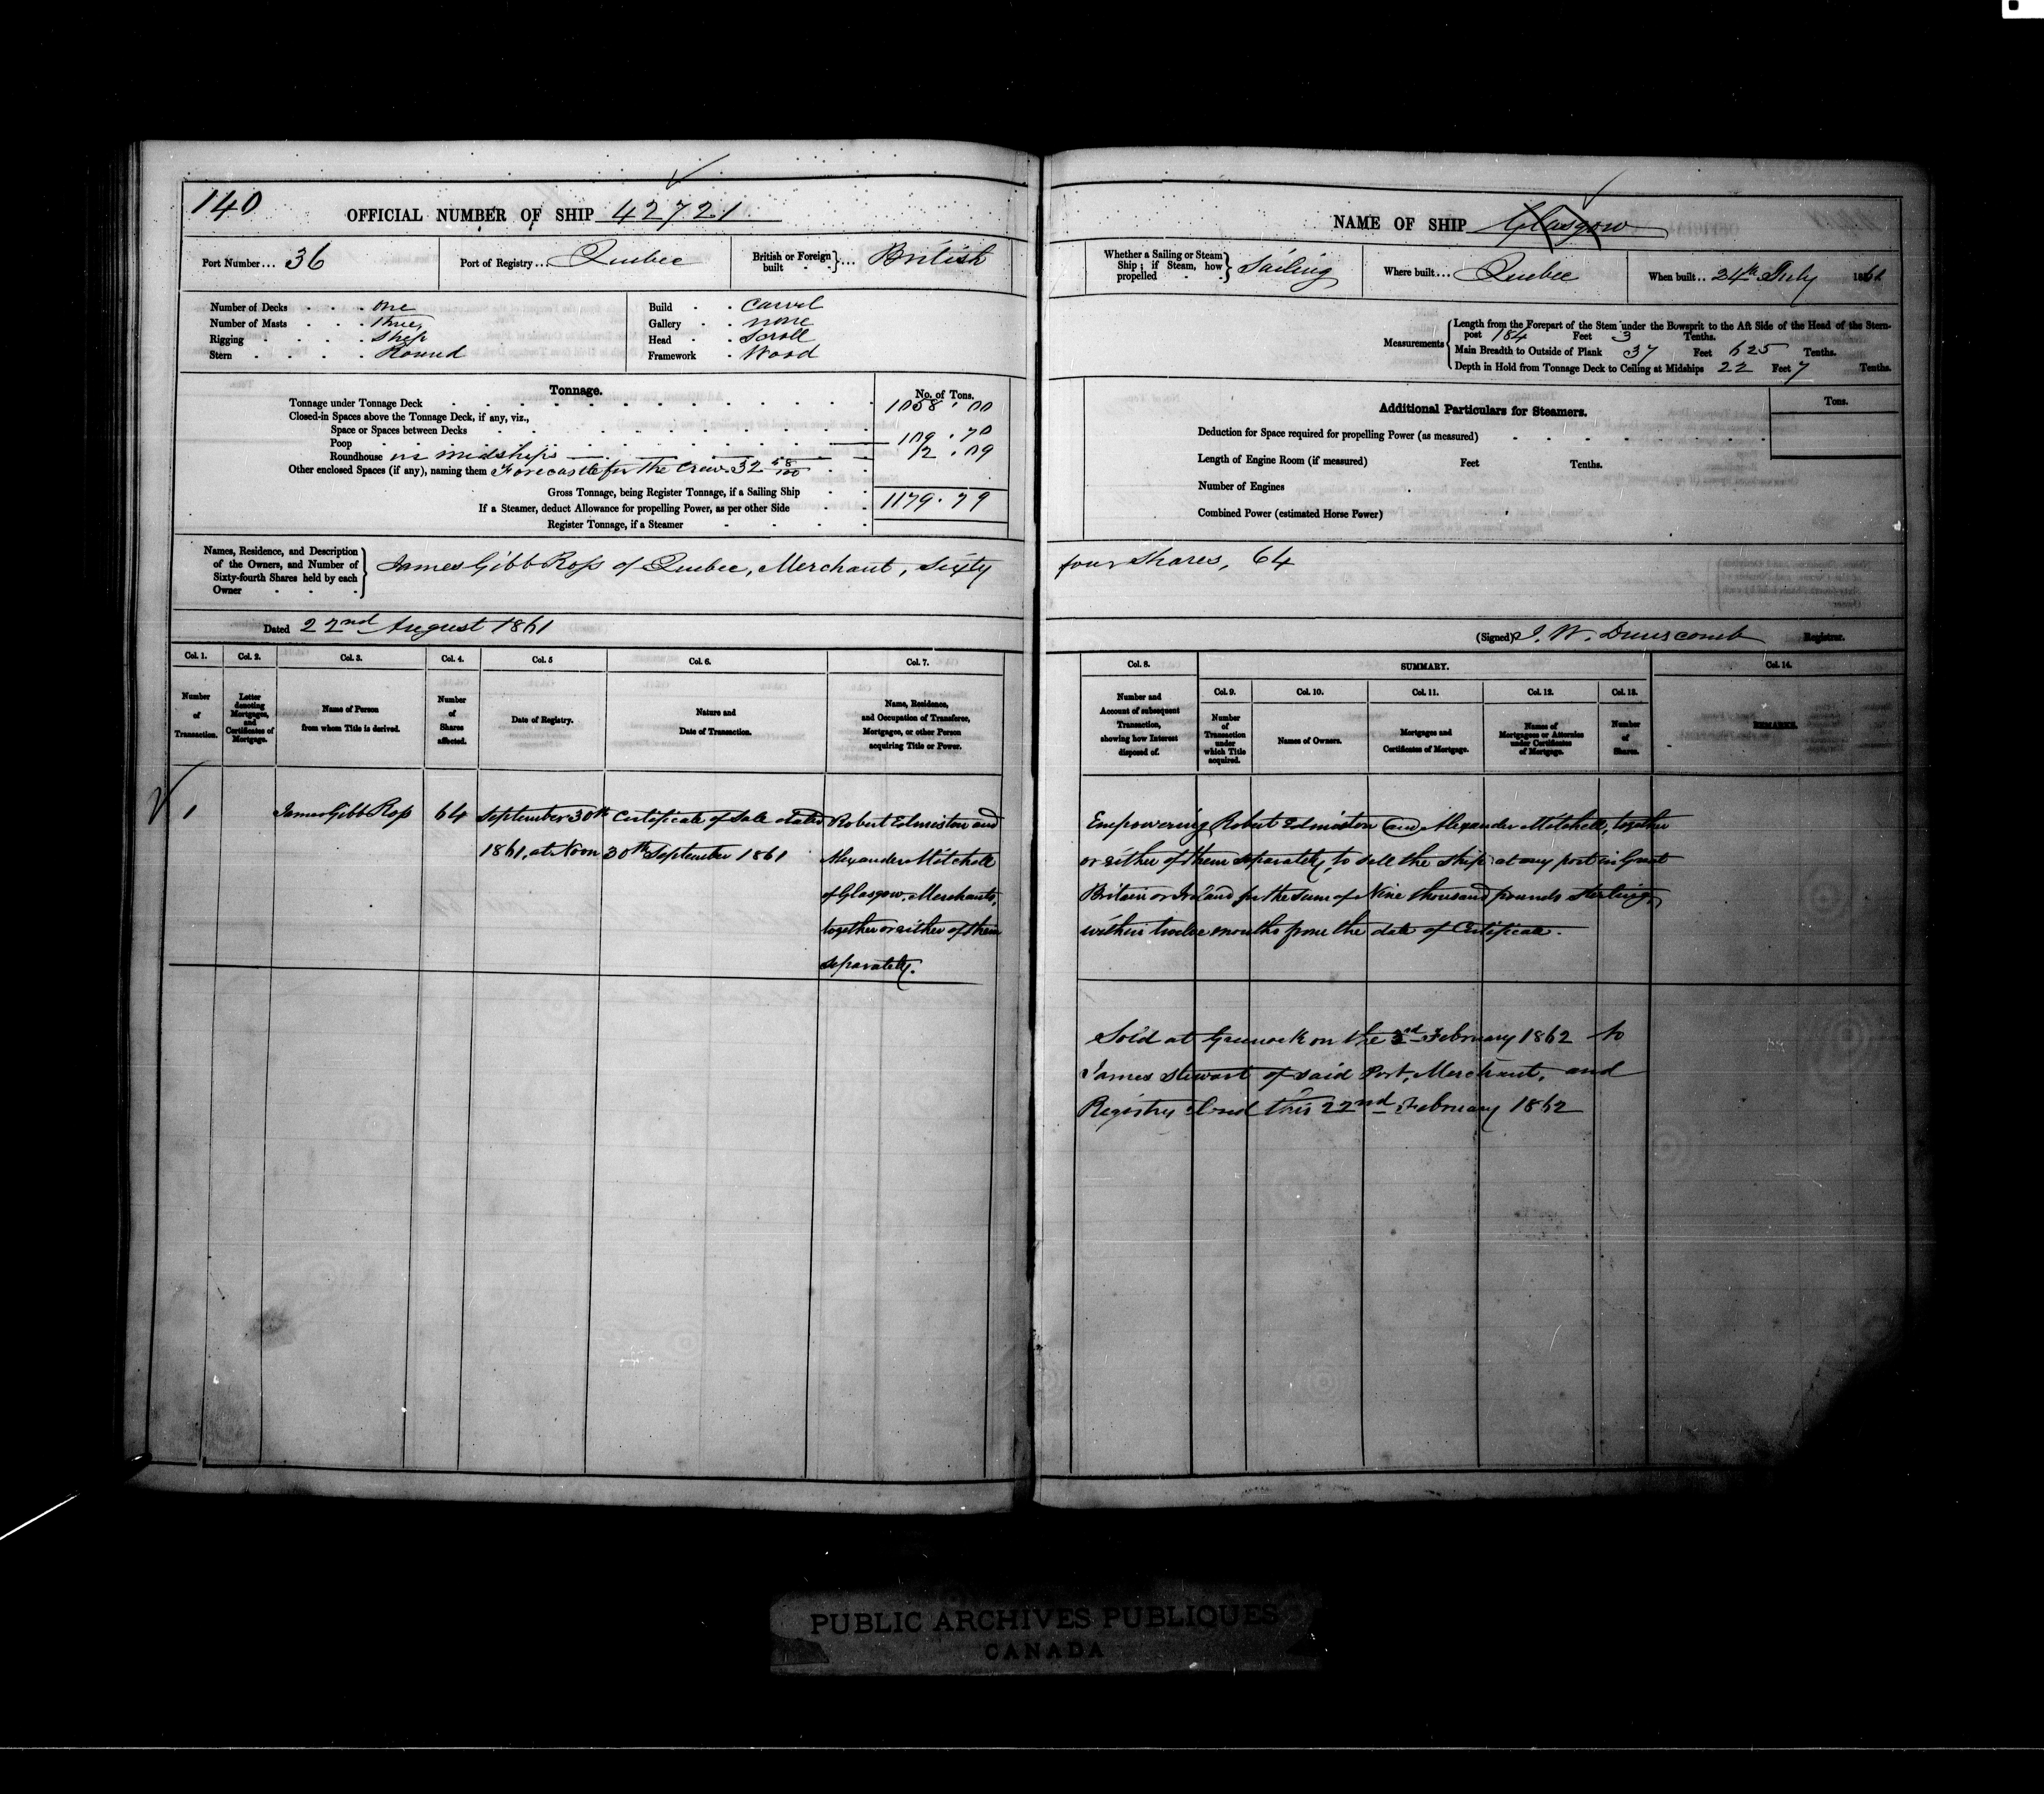 140
OFFICIAL NUMBER OF SHIP 42721
Port Number... 36
Port of Registry... Quebec
British or Foreign built } ... British
Number of Decks . . . one
Number of Masts . . . three
Rigging . . . . Ship
Stern . . . . Round
Build . . Carvel
Gallery . . none
Head . . Scroll
Framework . Wood
Tonnage.
No. of Tons.
Tonnage under Tonnage Deck 1058.00
Closed-in Spaces above the Tonnage Deck, if any, viz.,
Space or Spaces between Decks
Poop 109.70
Roundhouse in midships 12.09
Other enclosed Spaces (if any), naming them Forecastle for the Crew 32 58/100
Gross Tonnage, being Register Tonnage, if a Sailing Ship 1179.79
If a Steamer, deduct Allowance for propelling Power, as per other Side
Register Tonnage, if a Steamer
Names, Residence, and Description
of the Owners, and Number of
Sixty-fourth Shares held by each
Owner
James Gibb Ross of Quebec, Merchant, Sixty
Dated 22nd August 1861
Col. 1. Col. 2. Col. 3. Col. 4. Col. 5 Col. 6. Col. 7.
Number of Transaction.
Letter denoting Mortgages, and Certificates of Mortgage.
Name of Person from whom Title is derived.
Number of Shares affected.
Date of Registry.
Nature and Date of Transaction.
Name, Residence, and Occupation of Transferee, Mortgagee, or other Person acquiring Title or Power.
1 James Gibb Ross 64 September 30th Certificate of Sale dated Robert Edmiston and
1861, at Noon 30th September 1861 Alexander Mitchell
of Glasgow, Merchants,
together or either of them
separately.
NAME OF SHIP Glasgow
Whether a Sailing or Steam Ship; if Steam, how propelled } Sailing
Where built... Quebec
When built.. 24th July 1861
Measurements
Length from the Forepart of the Stem under the Bowsprit to the Aft Side of the Head of the Stern-
post 184 Feet 3 Tenths.
Main Breadth to Outside of Plank 37 Feet 625 Tenths.
Depth in Hold from Tonnage Deck to Ceiling at Midships 22 Feet 7 Tenths.
Additional Particulars for Steamers.
Tons.
Deduction for Space required for propelling Power (as measured)
Length of Engine Room (if measured) Feet Tenths.
Number of Engines
Combined Power (estimated Horse Power)
four Shares, 64
(Signed) J. W. Dunscomb Registrar.
Col. 8. SUMMARY. Col. 14.
Col. 9. Col. 10. Col. 11. Col. 12. Col. 13.
Number and Account of subsequent Transaction, showing how Interest disposed of.
Number of Transaction under which Title acquired.
Names of Owners.
Mortgages and Certificates of Mortgage.
Names of Mortgagees or Attornies under Certificates of Mortgage.
Number of Shares.
REMARKS.
Empowering Robert Edmiston and Alexander Mitchell, together
or either of them separately, to sell the Ship at any port in Great
Britain or Ireland for the sum of Nine thousand pounds sterling,
within twelve months from the date of Certificate.
Sold at Greenock on the 3rd February 1862 to
James Stewart of said Port, Merchant, and
Registry closed this 22nd February 1862
PUBLIC ARCHIVES PUBLIQUES
CANADA